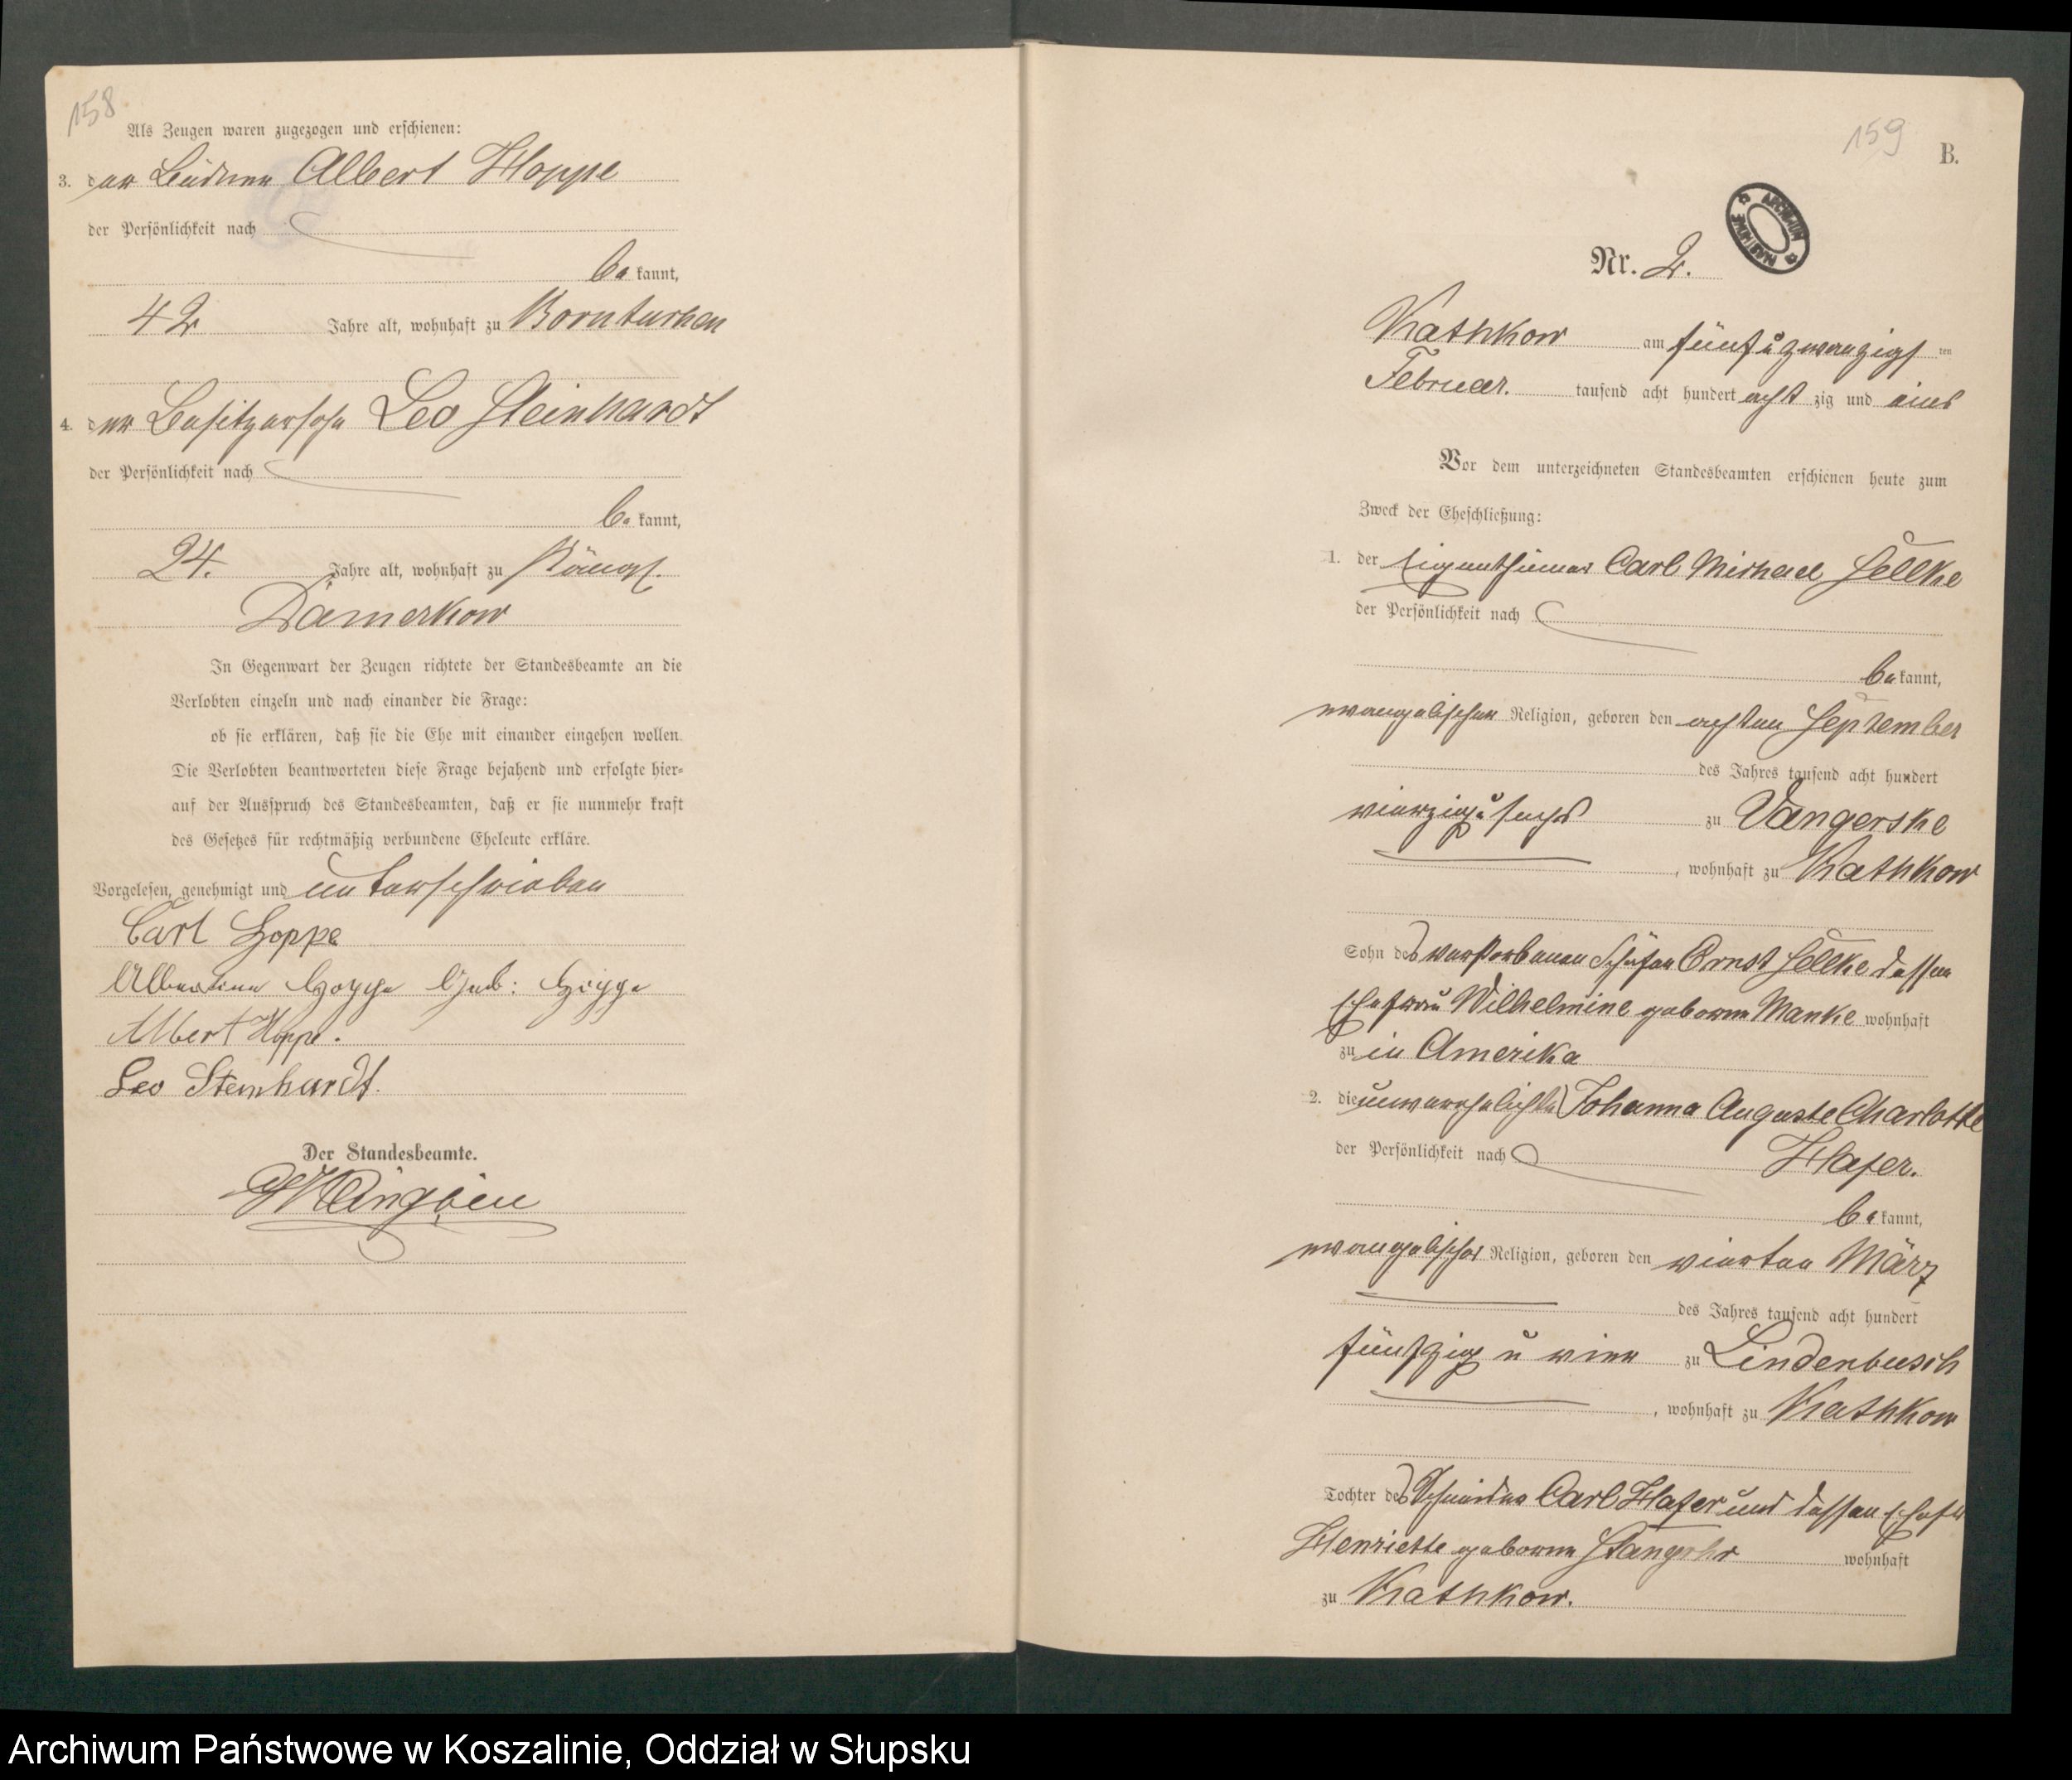 158
Als Zeugen waren zugezogen und erschienen:
3. der Büdner Albert Hoppe
der Persönlichkeit nach
be kannt,
42 Jahre alt, wohnhaft zu Borntuchen
4. der Besitzersohn Leo Steinhardt
der Persönlichkeit nach
be kannt,
24. Jahre alt, wohnhaft zu Königl.
Damerkow
In Gegenwart der Zeugen richtete der Standesbeamte an die
Verlobten einzeln und nach einander die Frage:
ob sie erklären, daß sie die Ehe mit einander eingehen wollen.
Die Verlobten beantworteten diese Frage bejahend und erfolgte hier=
auf der Ausspruch des Standesbeamten, daß er sie nunmehr kraft
des Gesetzes für rechtmäßig verbundene Eheleute erkläre.
Vorgelesen, genehmigt und unterschrieben
Carl Hoppe
Albertine Hoppe Geb: Hoppe
Albert Hoppe.
Leo Steinhardt.
Der Standesbeamte.
159
B.
ARCHIWUM
Nr. 2.
Kathkow am fünf u zwanzigs ten
Februar. tausend acht hundert acht zig und eins
Vor dem unterzeichneten Standesbeamten erschienen heute zum
Zweck der Eheschließung:
1. der Eigenthümer Carl Michael Sellke
der Persönlichkeit nach
be kannt,
evangelischer Religion, geboren den achten September
des Jahres tausend acht hundert
vierzig u sechs zu Vangerske
, wohnhaft zu Kathkow
Sohn des verstorbenen Schäfer Ernst Sellke dessen
Ehefrau Wilhelmine geborne Manke wohnhaft
zu in Amerika
2. die unverehelichte Johanna Auguste Charlotte
der Persönlichkeit nach Hafer.
be kannt,
evangelischer Religion, geboren den vierten März
des Jahres tausend acht hundert
fünfzig u vier zu Lindenbusch
, wohnhaft zu Kathkow
Tochter des Schneider Carl Hafer und dessen Ehefr
Henriette geborne wohnhaft
zu Kathkow.
Archiwum Państwowe w Koszalinie, Oddział w Słupsku